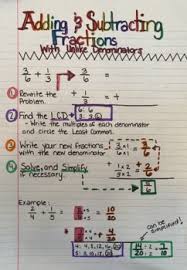 Adding & Subtracting
Fractions
With Unlike Denominators
3/6 + 1/3 → 3/6
+ 1/3
① Rewrite the
Problem.
3/6 + 1/3 =
② Find the LCD
- Write the multiples of each denominator
and circle the Least Common.
③ Write your new fractions
with the new denominator
3 × 1 = 3
6 × 1 = 6
④ Solve, and Simplify
if necessary.
+ 1 × 2 = 2
3 × 2 = 6
5/6
Example:
2/4 + 1/5 =
10/20
4/20
14/20
can be
simplified!
4: 4, 8, 12, 16, 20
14 ÷ 2 = 7
20 ÷ 2 = 10